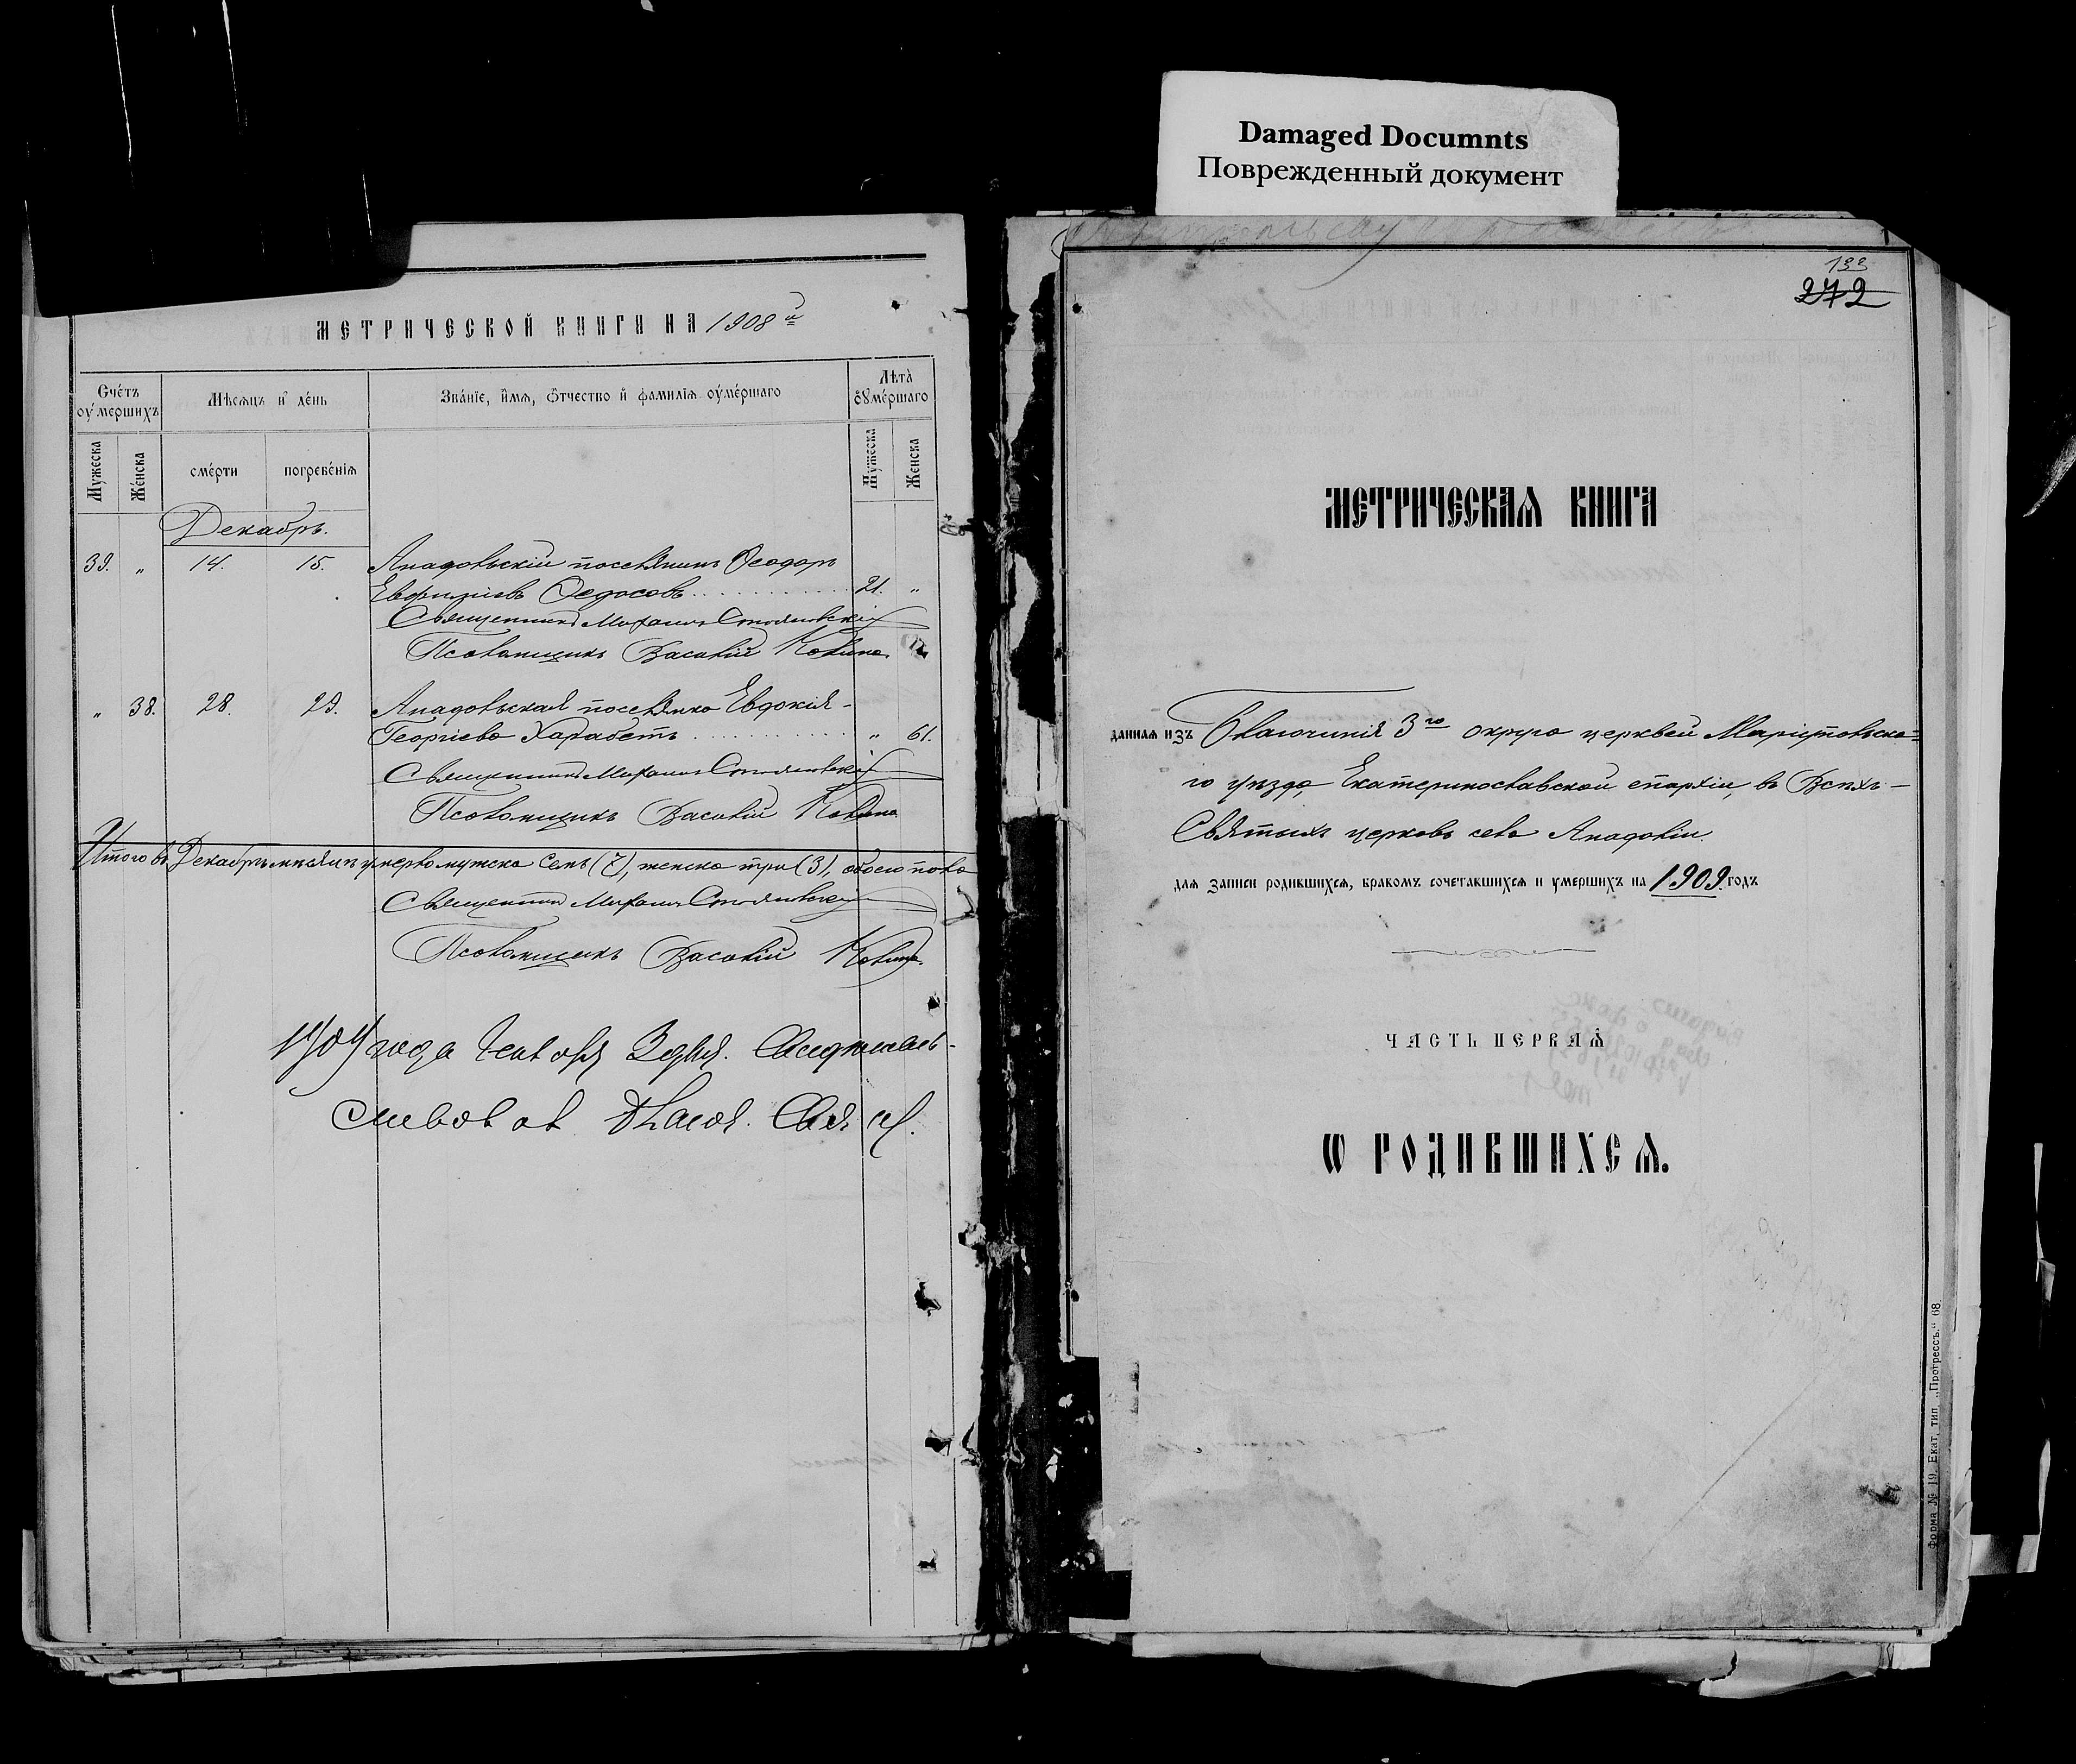 Damaged Documnts
Поврежденный документ
МЕТРИЧЕСКОЙ КНИГИ НА 1908 й
Счетъ оумершихъ
Мѣсѧцъ и день
Званїе, имѧ, ѿчество и фамилїѧ оумершаго
Лѣта оумершаго
Мужеска
Женска
смерти
погребенїѧ
Мужеска
Женска
Декабрь.
39. „ 14. 15. Анадольскій поселянинъ Ѳеодоръ
Евфиміевъ Ѳедосовъ 21. „
Священникъ Михаилъ
Псаломщикъ Василій
„ 38. 28. 29. Анадольская поселянка Евдокія
Георгіева Харабетъ „ 61.
Священникъ Михаилъ
Псаломщикъ Василій
Итого въ Декабрѣ мѣсяцѣ умерло мужска семь (7), женска три (3), обоего пола
Священникъ Михаилъ
Псаломщикъ Василій
1909 года Января 3 дня.
133
272
МЕТРИЧЕСКАѦ КНИГА
даннаѧ изъ Благочинія 3го округа церквей Маріупольска=
го уѣзда Екатеринославской епархіи, въ Всѣхъ-
Святыхъ церковь села Анадоліи.
длѧ записи родившихсѧ, бракомъ сочетавшихсѧ и умершихъ на 1909 годъ
ЧАСТЬ ПЕРВАѦ
Ѡ РОДИВШИХСѦ.
Форма № 119. Екат., тип. „Прогрессъ.“ 68.